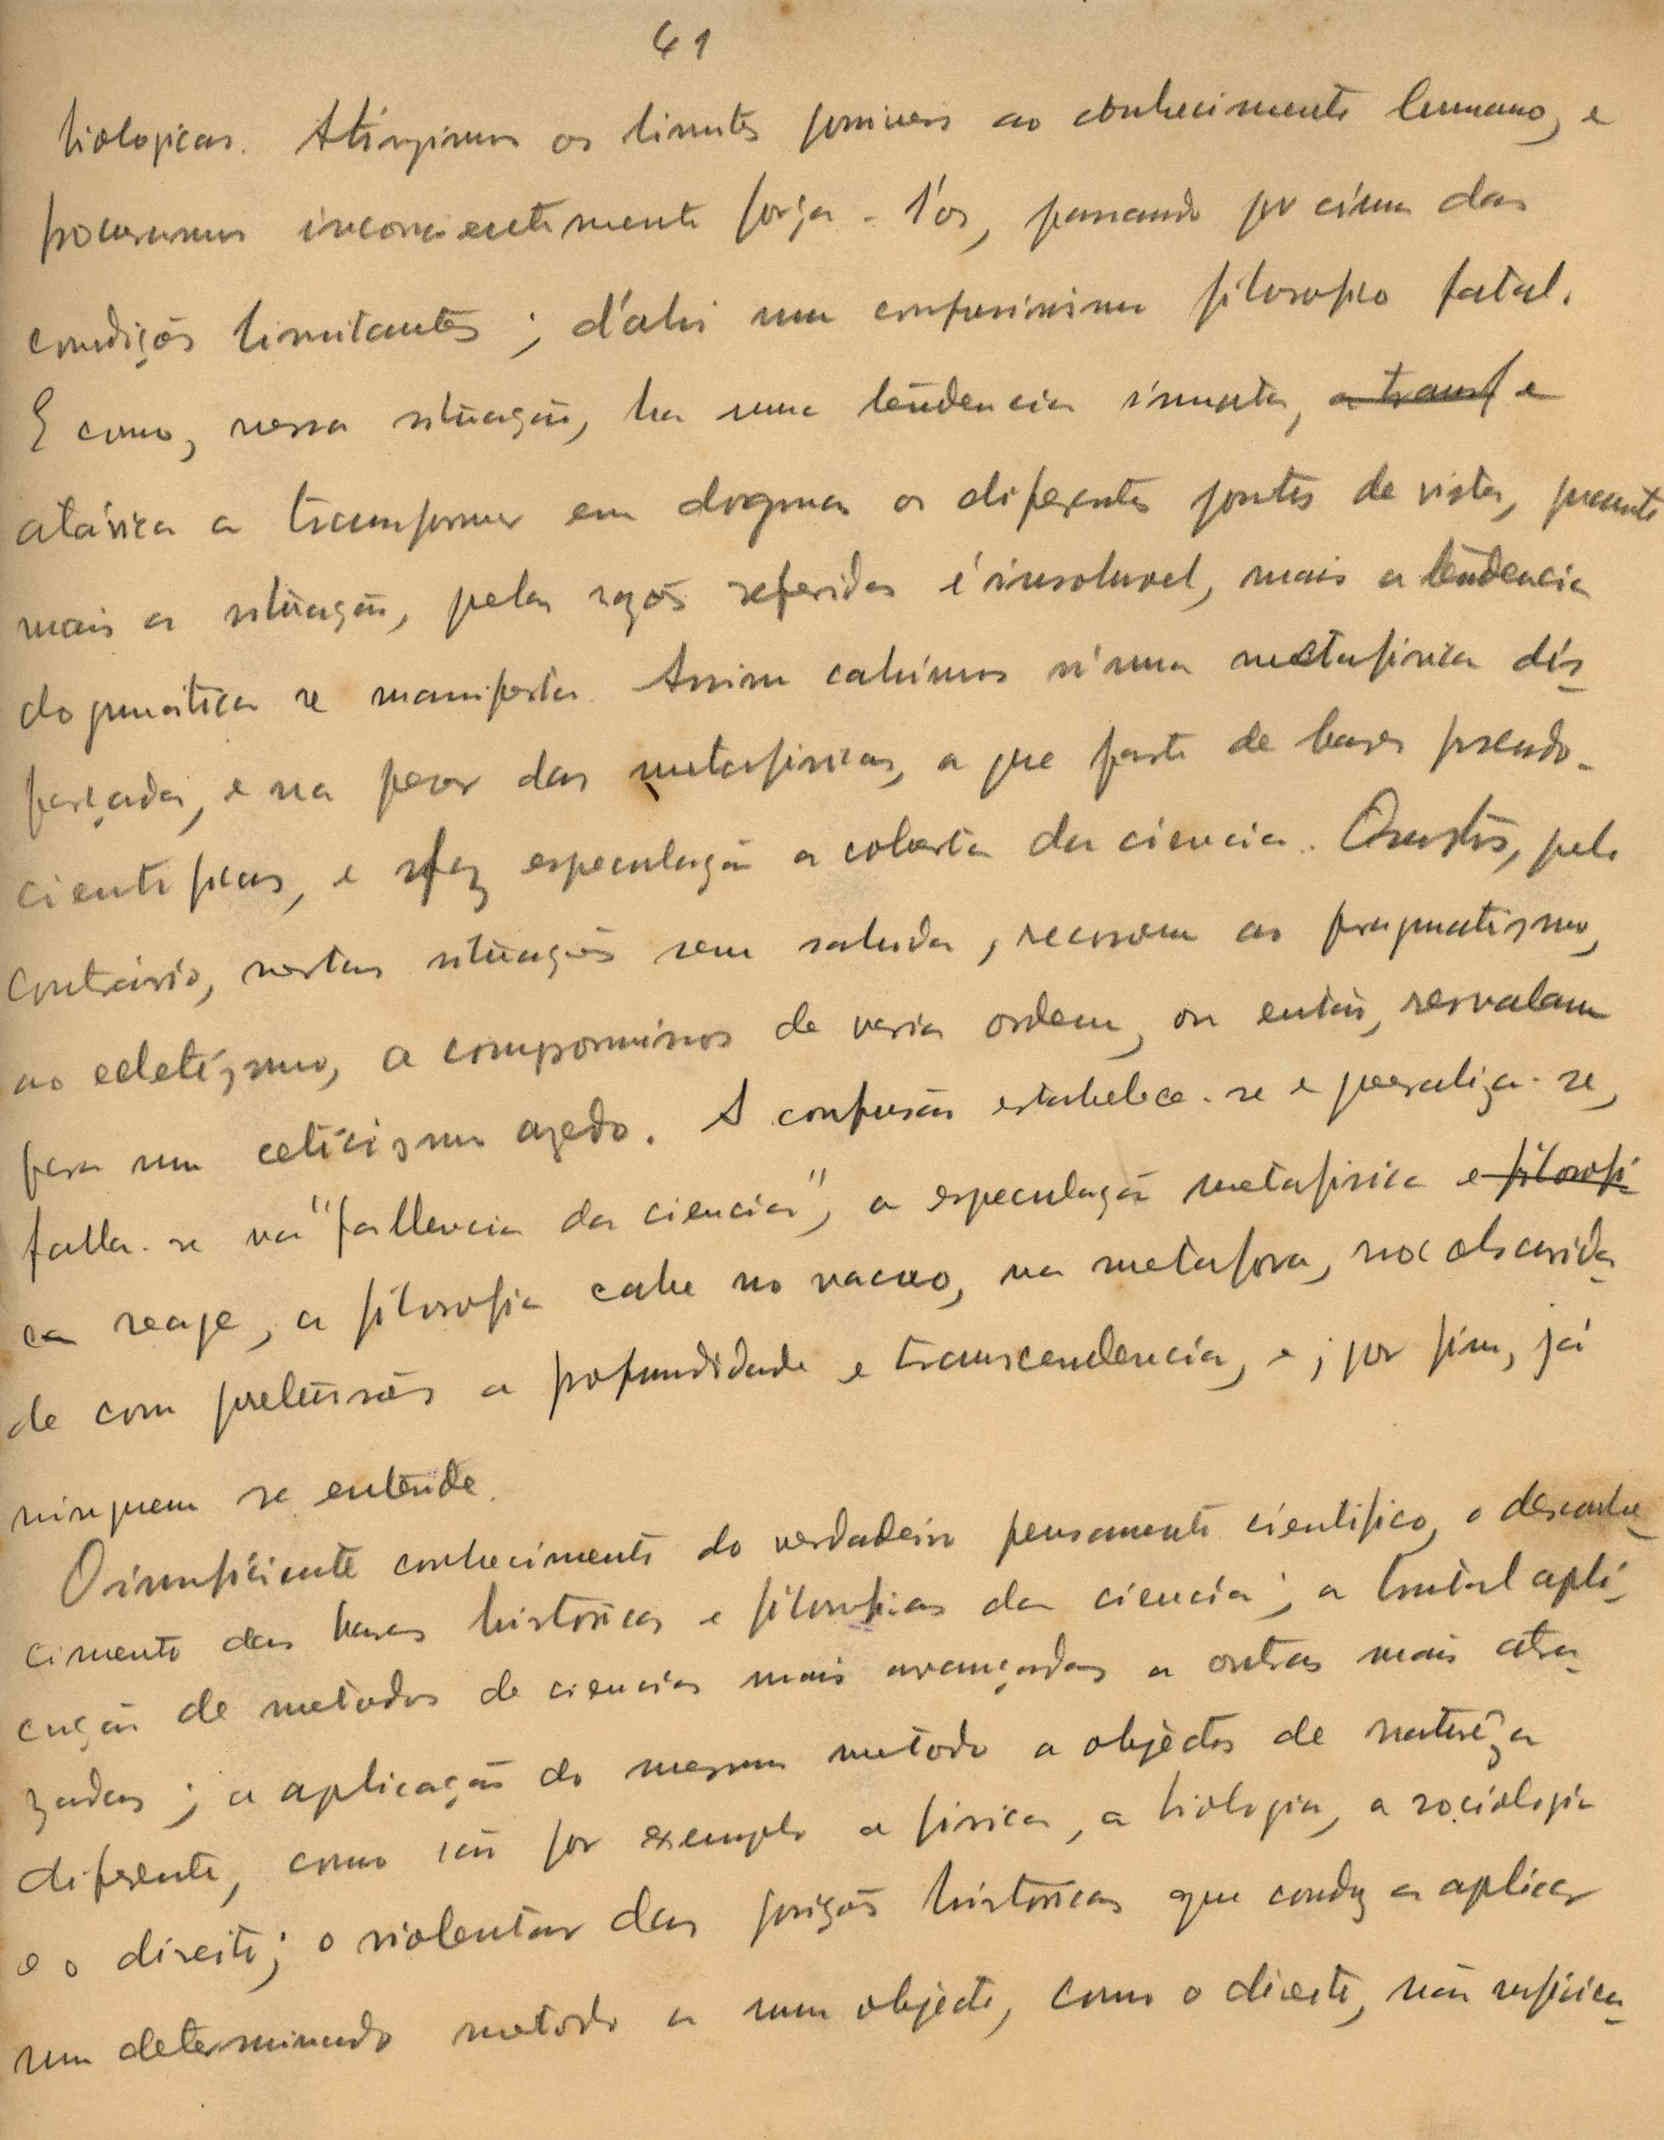 61
biologicas. Atingimos os limites possiveis ao conhecimento humano, e
procuramos inconscientemente força-l'os, passando por cima das
condições limitantes; d'ahi um confusissimo filosofico fatal.
E como, nessa situação, ha uma tendencia innata, a transf e
atávica a transformar em dogmas os diferentes pontos de vista, quanto
mais a situação, pelas razões referidas é insoluvel, mais a tendencia
dogmatica se manifesta. Assim cahimos n'uma metafisica dis-
farçada, e na peor das metafisicas, a que parte de bases pseudo-
cientificas, e se faz especulação a coberto da ciencia. Quantos, pelo
contrário, nestas situações sem sahida, recorrem ao pragmatismo,
ao ecletismo, a compromissos de varia ordem, ou então, resvalam
para um ceticismo azedo. A confusão estabelece-se e generaliza-se,
falla-se na "fallencia da ciencia", a especulação metafisica e filosofi
ca reage, a filosofia cahe no vacuo, na metafora, na obscurida-
de com pretensões a profundidade e transcendencia, e, por fim, já
ninguem se entende.
O insuficiente conhecimento do verdadeiro pensamento cientifico, o desconhe-
cimento das bases historicas e filosoficas da ciencia; a brutal apli-
cação de metodos de ciencias mais avançadas a outras mais atra-
zadas; a aplicação do mesmo metodo a objectos de natureza
diferente, como são por exemplo a fisica, a biologia, a sociologia
e o direito; o violentar das posições historicas que conduz a aplicar
um determinado metodo a um objecto, como o direito, não suficien-